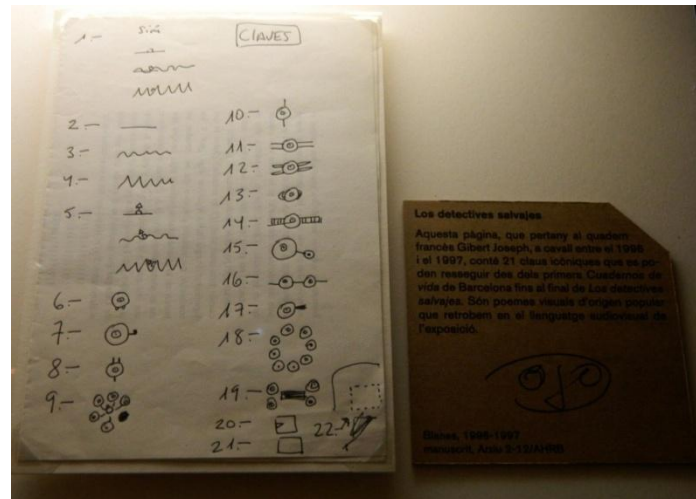 1.- Sión
CLAVES
2.-
3.-
4.-
5.-
6.-
7.-
8.-
9.-
10.-
11.-
12.-
13.-
14.-
15.-
16.-
17.-
18.-
19.-
20.-
21.-
22.-
Los detectives salvajes
Aquesta pàgina, que pertany al quadern
francès Gibert Joseph, a cavall entre el 1996
i el 1997, conté 21 claus icòniques que es po-
den resseguir des dels primers Cuadernos de
vida de Barcelona fins al final de Los detectives
salvajes. Són poemes visuals d'origen popular
que retrobem en el llenguatge audiovisual de
l'exposició.
Blanes, 1996-1997
manuscrit, Arxiu 5-12/AHRB